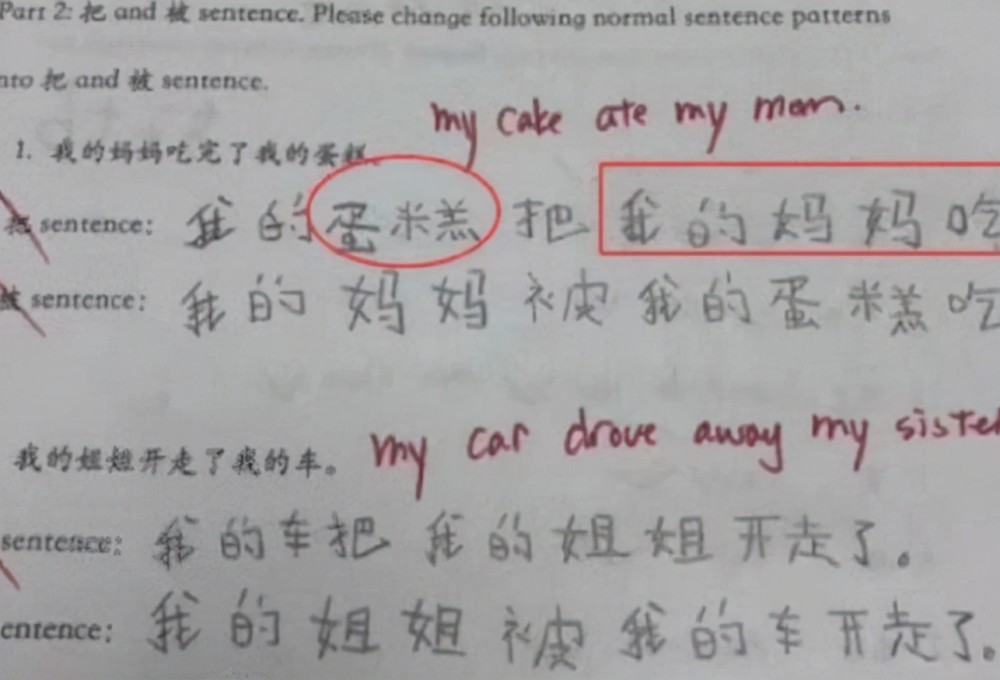 Part 2: 把 and 被 sentence. Please change following normal sentence patterns
nto 把 and 被 sentence.
my cake ate my mom.
1. 我的妈妈吃完了我的蛋糕。
把 sentence: 我的蛋糕把我的妈妈吃
被 sentence: 我的妈妈被我的蛋糕吃
my car drove away my sister
我的姐姐开走了我的车。
sentence: 我的车把我的姐姐开走了。
entence: 我的姐姐被我的车开走了。